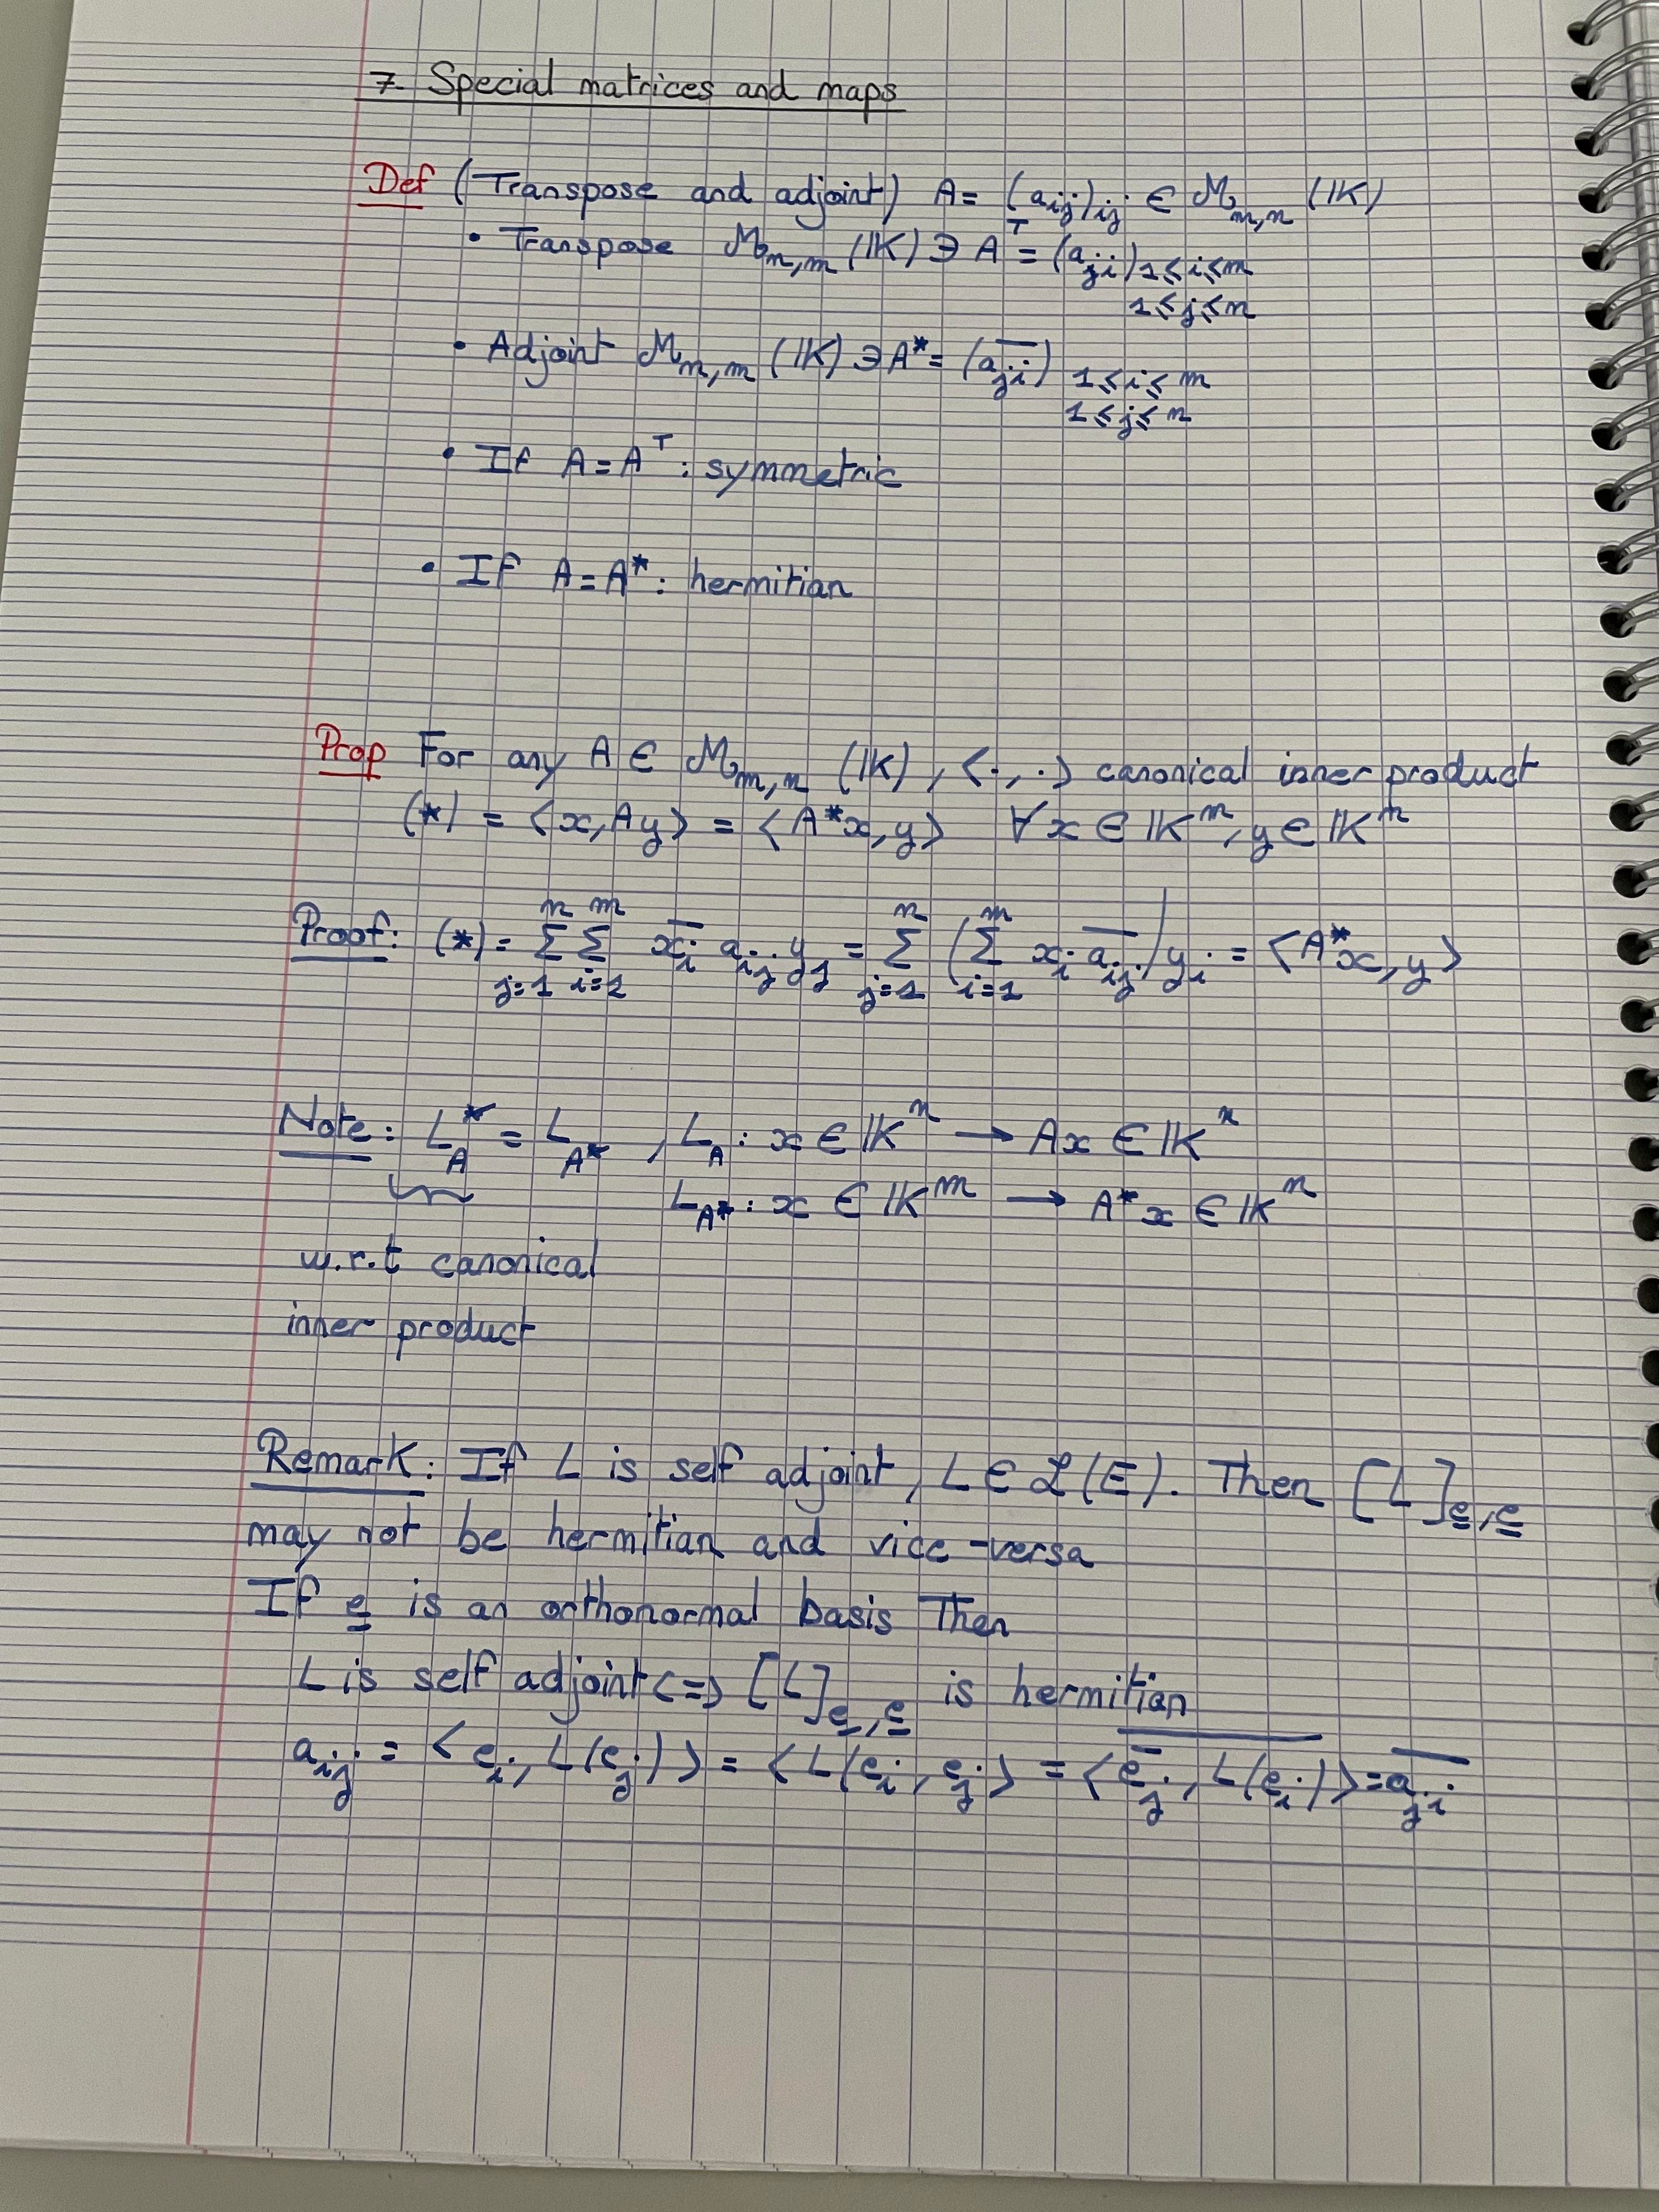 7. Special matrices and maps
Def (Transpose and adjoint) A = (a_ij)_ij ∈ M_m,n (IK)
• Transpose M_n,m (IK) ∋ A^T = (a_ji) 1≤i≤m
1≤j≤n
• Adjoint M_n,m (IK) ∋ A* = (a̅_ji) 1≤i≤m
1≤j≤n
• If A = A^T : symmetric
• If A = A* : hermitian
Prop For any A ∈ M_m,n (IK), <.,.> canonical inner product
(*) = <x, Ay> = <A*x, y> ∀ x ∈ IK^m, y ∈ IK^n
Proof: (*) = Σ_{j=1}^{n} Σ_{i=1}^{m} x̅_i a_ij y_j = Σ_{j=1}^{n} (Σ_{i=1}^{m} \overline{x_i a_ij}) y_i = <A*x, y>
Note: L_A^* = L_A* , L_A : x ∈ IK^n → Ax ∈ IK^n
L_A* : x ∈ IK^m → A*x ∈ IK^n
w.r.t canonical
inner product
Remark: If L is self adjoint, L ∈ L(E). Then [L]_e,e
may not be hermitian and vice-versa
If e is an orthonormal basis Then
L is self adjoint <=> [L]_e,e is hermitian
a_ij = <e_i, L(e_j)> = <L(e_i, e_j> = \overline{<e_j, L(e_i)>} = a̅_ji